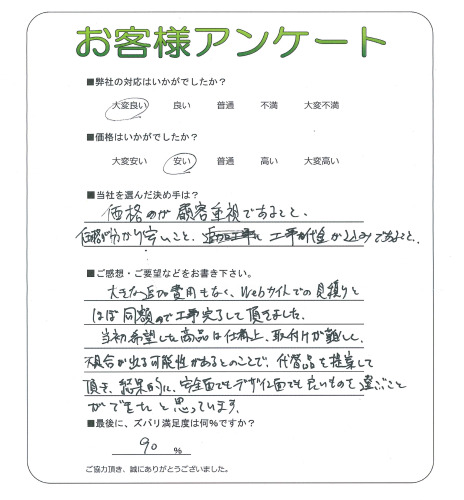 お客様アンケート
■弊社の対応はいかがでしたか？
大変良い 良い 普通 不満 大変不満
■価格はいかがでしたか？
大変安い 安い 普通 高い 大変高い
■当社を選んだ決め手は？
価格のが 顧客重視であること、
価格が分かり安いこと、 工事代金が込みであること、
■ご感想・ご要望などをお書き下さい。
大きな追加費用もなく、Webサイトでの見積りと
ほぼ同額ので工事完了して頂きました。
当初希望した商品は仕様上、取付けが難しく、
不具合が出る可能性があるとのことで、代替品を提案して
頂き、結果的に、安全面でもデザイン面でも良いものを選ぶこと
ができたと思っています。
■最後に、ズバリ満足度は何%ですか？
90 %
ご協力頂き、誠にありがとうございました。